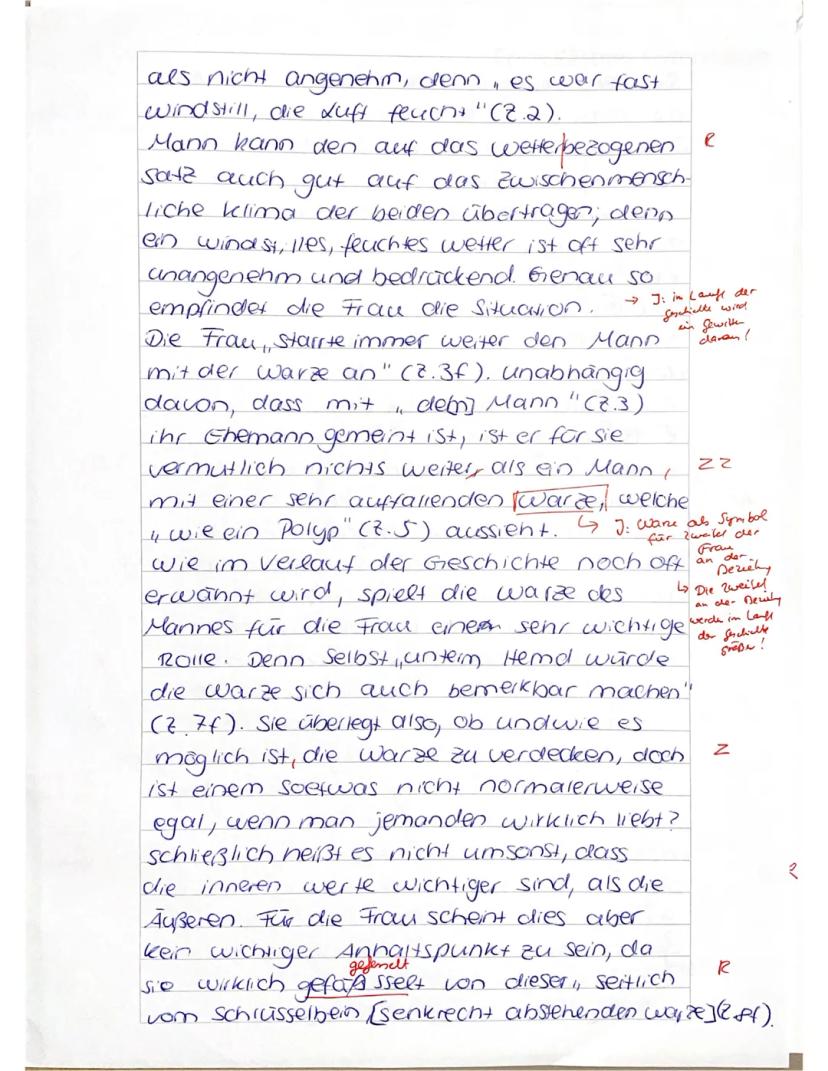 als nicht angenehm, denn „es war fast
windstill, die Luft feucht" (Z.2).
Mann kann den auf das wetterbezogenen R
Satz auch gut auf das zwischenmensch-
liche Klima der beiden übertragen; denn
ein windstilles, feuchtes wetter ist oft sehr
unangenehm und bedrückend. Genau so
empfindet die Frau die Situation. → I: im Laufe der
Geschichte wird
ein Gewitter
daraus!
Die Frau „starrte immer weiter den Mann
mit der Warze an" (Z.3f). unabhängig
davon, dass mit „de[n] Mann" (Z.3)
ihr Ehemann gemeint ist, ist er für sie
vermutlich nichts weiter, als ein Mann, ZZ
mit einer sehr auffallenden Warze, welche
„wie ein Polyp" (Z.5) aussieht. ↳ I: Warze als Symbol
für Zweifel der
Frau
an der
Beziehung
↳ Die Zweifel
an der Beziehung
werden im Lauf
der Geschichte
größer!
Wie im Verlauf der Geschichte noch oft
erwähnt wird, spielt die Warze des
Mannes für die Frau eine sehr wichtige
Rolle. Denn selbst „unterm Hemd würde
die Warze sich auch bemerkbar machen"
(Z.7f). Sie überlegt also, ob und wie es
möglich ist, die Warze zu verdecken, doch Z
ist einem soetwas nicht normalerweise
egal, wenn man jemanden wirklich liebt?
schließlich heißt es nicht umsonst, dass
die inneren werte wichtiger sind, als die
Äußeren. Für die Frau scheint dies aber
kein wichtiger Anhaltspunkt zu sein, da
gefesselt
sie wirklich gefäßsselt von dieser „seitlich R
vom Schlüsselbein [senkrecht abstehenden Warze] (Z.8f).